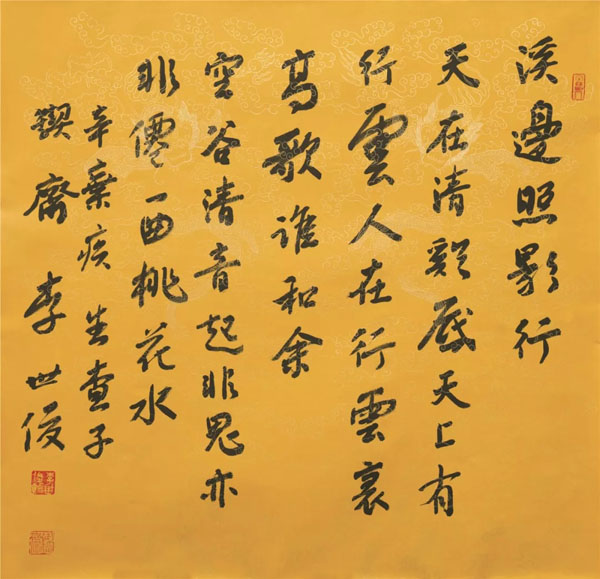 溪邊照影行
天在清谿底天上有
行雲人在行雲裏
高歌誰和余
空谷清音起非鬼亦
非僊一曲桃花水
辛棄疾生查子
鍥齋李世俊